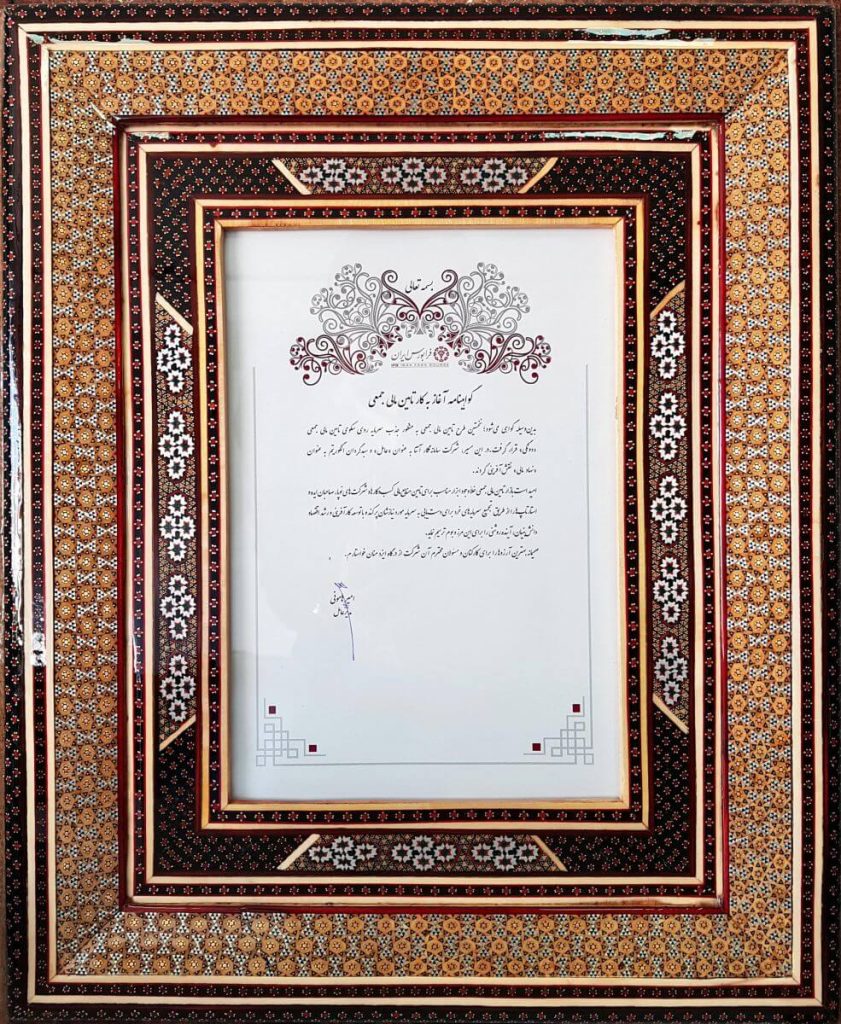 بسمه تعالی
فرابورس ایران
IFB IRAN FARA BOURSE
گواهینامه آغاز به کار تامین مالی جمعی
بدین‌وسیله گواهی می‌شود؛ نخستین طرح تامین مالی جمعی به منظور جذب سرمایه روی سکوی تامین مالی جمعی
دونگی، قرار گرفت. در این مسیر، شرکت سامانه‌گار آستا به عنوان «عامل» و سبدگردان الگوریتم به عنوان
«نهاد مالی» نقش آفرینی کردند.
امید است بازار تامین مالی جمعی خلاء وجود ابزار مناسب برای تامین منابع مالی کسب و کارها، شرکت‌های نوپا، صاحبان ایده و
استارتاپ‌ها را از طریق تجمیع سرمایه‌های خرد برای دست‌یابی به سرمایه مورد نیازشان پر کند و با توسعه کارآفرینی و رشد اقتصاد
دانش بنیان، آینده روشنی را برای این مرز و بوم ترسیم نماید.
صمیمانه بهترین آرزوها را برای کارکنان و مسئولان محترم آن شرکت از درگاه ایزد منان خواستارم.
امیر هامونی
مدیرعامل